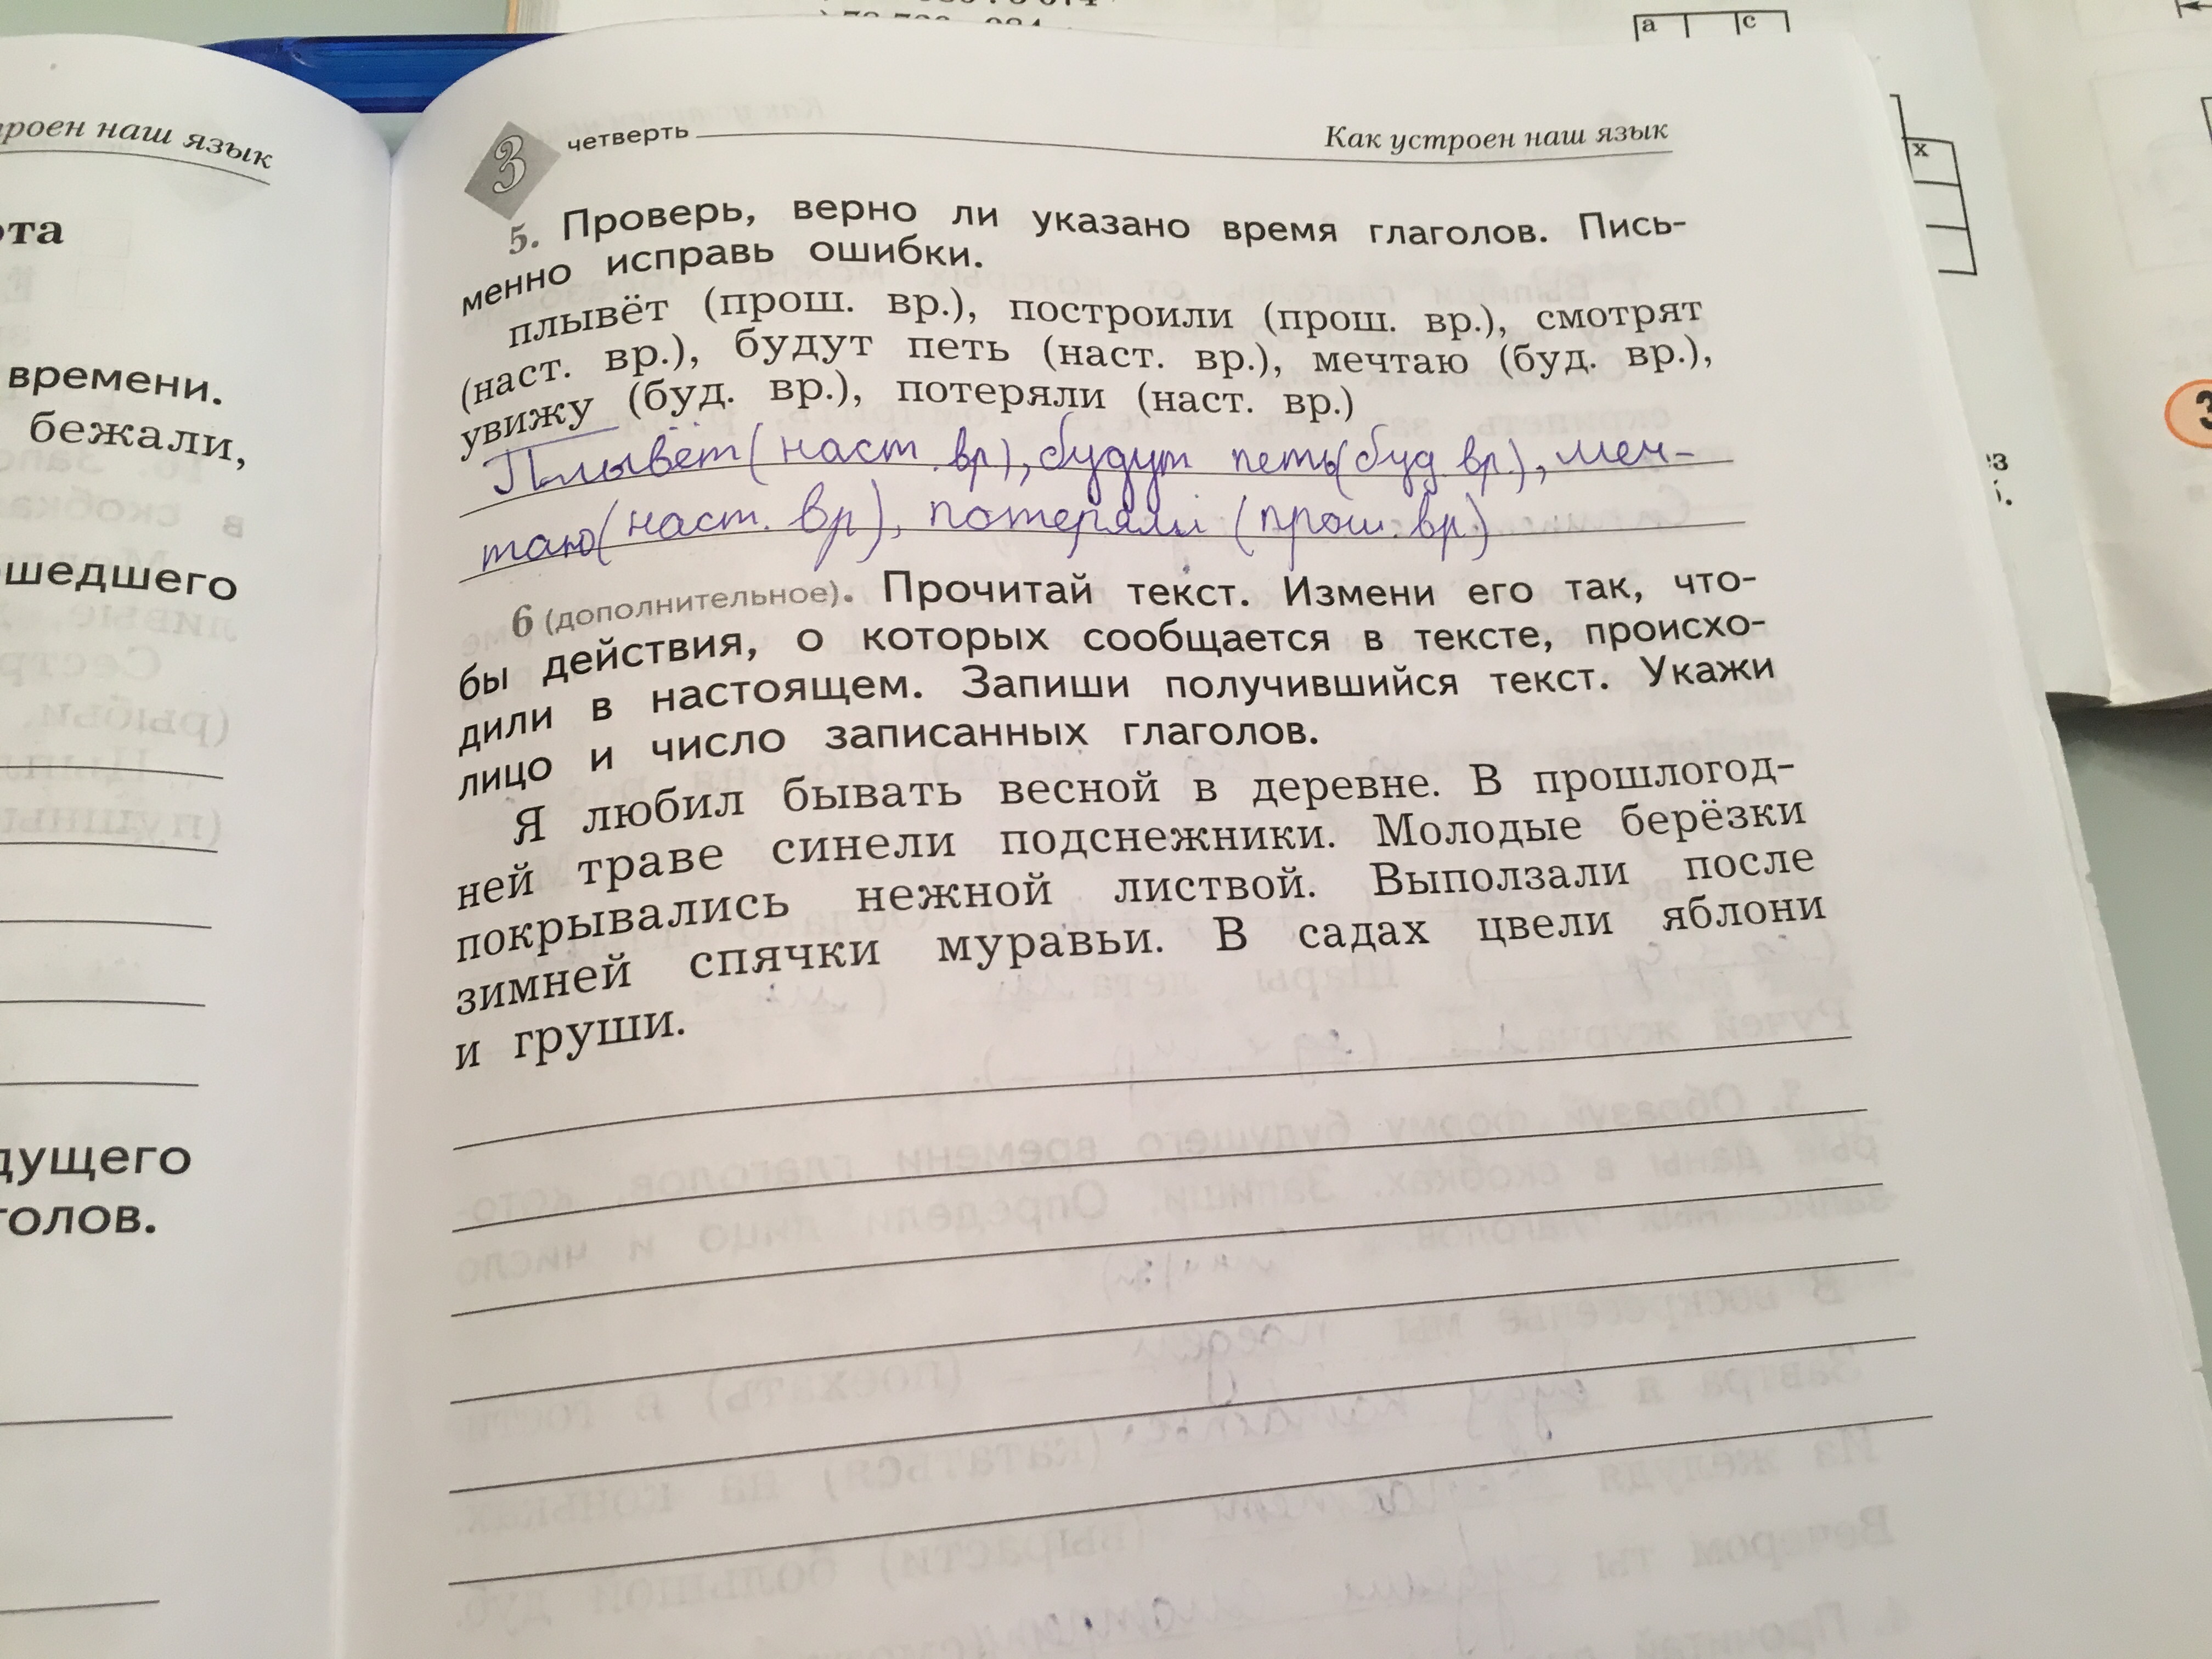 троен наш язык
ота
времени.
бежали,
ошедшего
дущего
голов.
а с
х
3
3 четверть Как устроен наш язык
5. Проверь, верно ли указано время глаголов. Пись-
менно исправь ошибки.
плывёт (прош. вр.), построили (прош. вр.), смотрят
(наст. вр.), будут петь (наст. вр.), мечтаю (буд. вр.),
увижу (буд. вр.), потеряли (наст. вр.)
Плывёт (наст. вр), будут петь (буд вр.), меч-
таю (наст. вр), потеряли (прош. вр)
6 (дополнительное). Прочитай текст. Измени его так, что-
бы действия, о которых сообщается в тексте, происхо-
дили в настоящем. Запиши получившийся текст. Укажи
лицо и число записанных глаголов.
Я любил бывать весной в деревне. В прошлогод-
ней траве синели подснежники. Молодые берёзки
покрывались нежной листвой. Выползали после
зимней спячки муравьи. В садах цвели яблони
и груши.